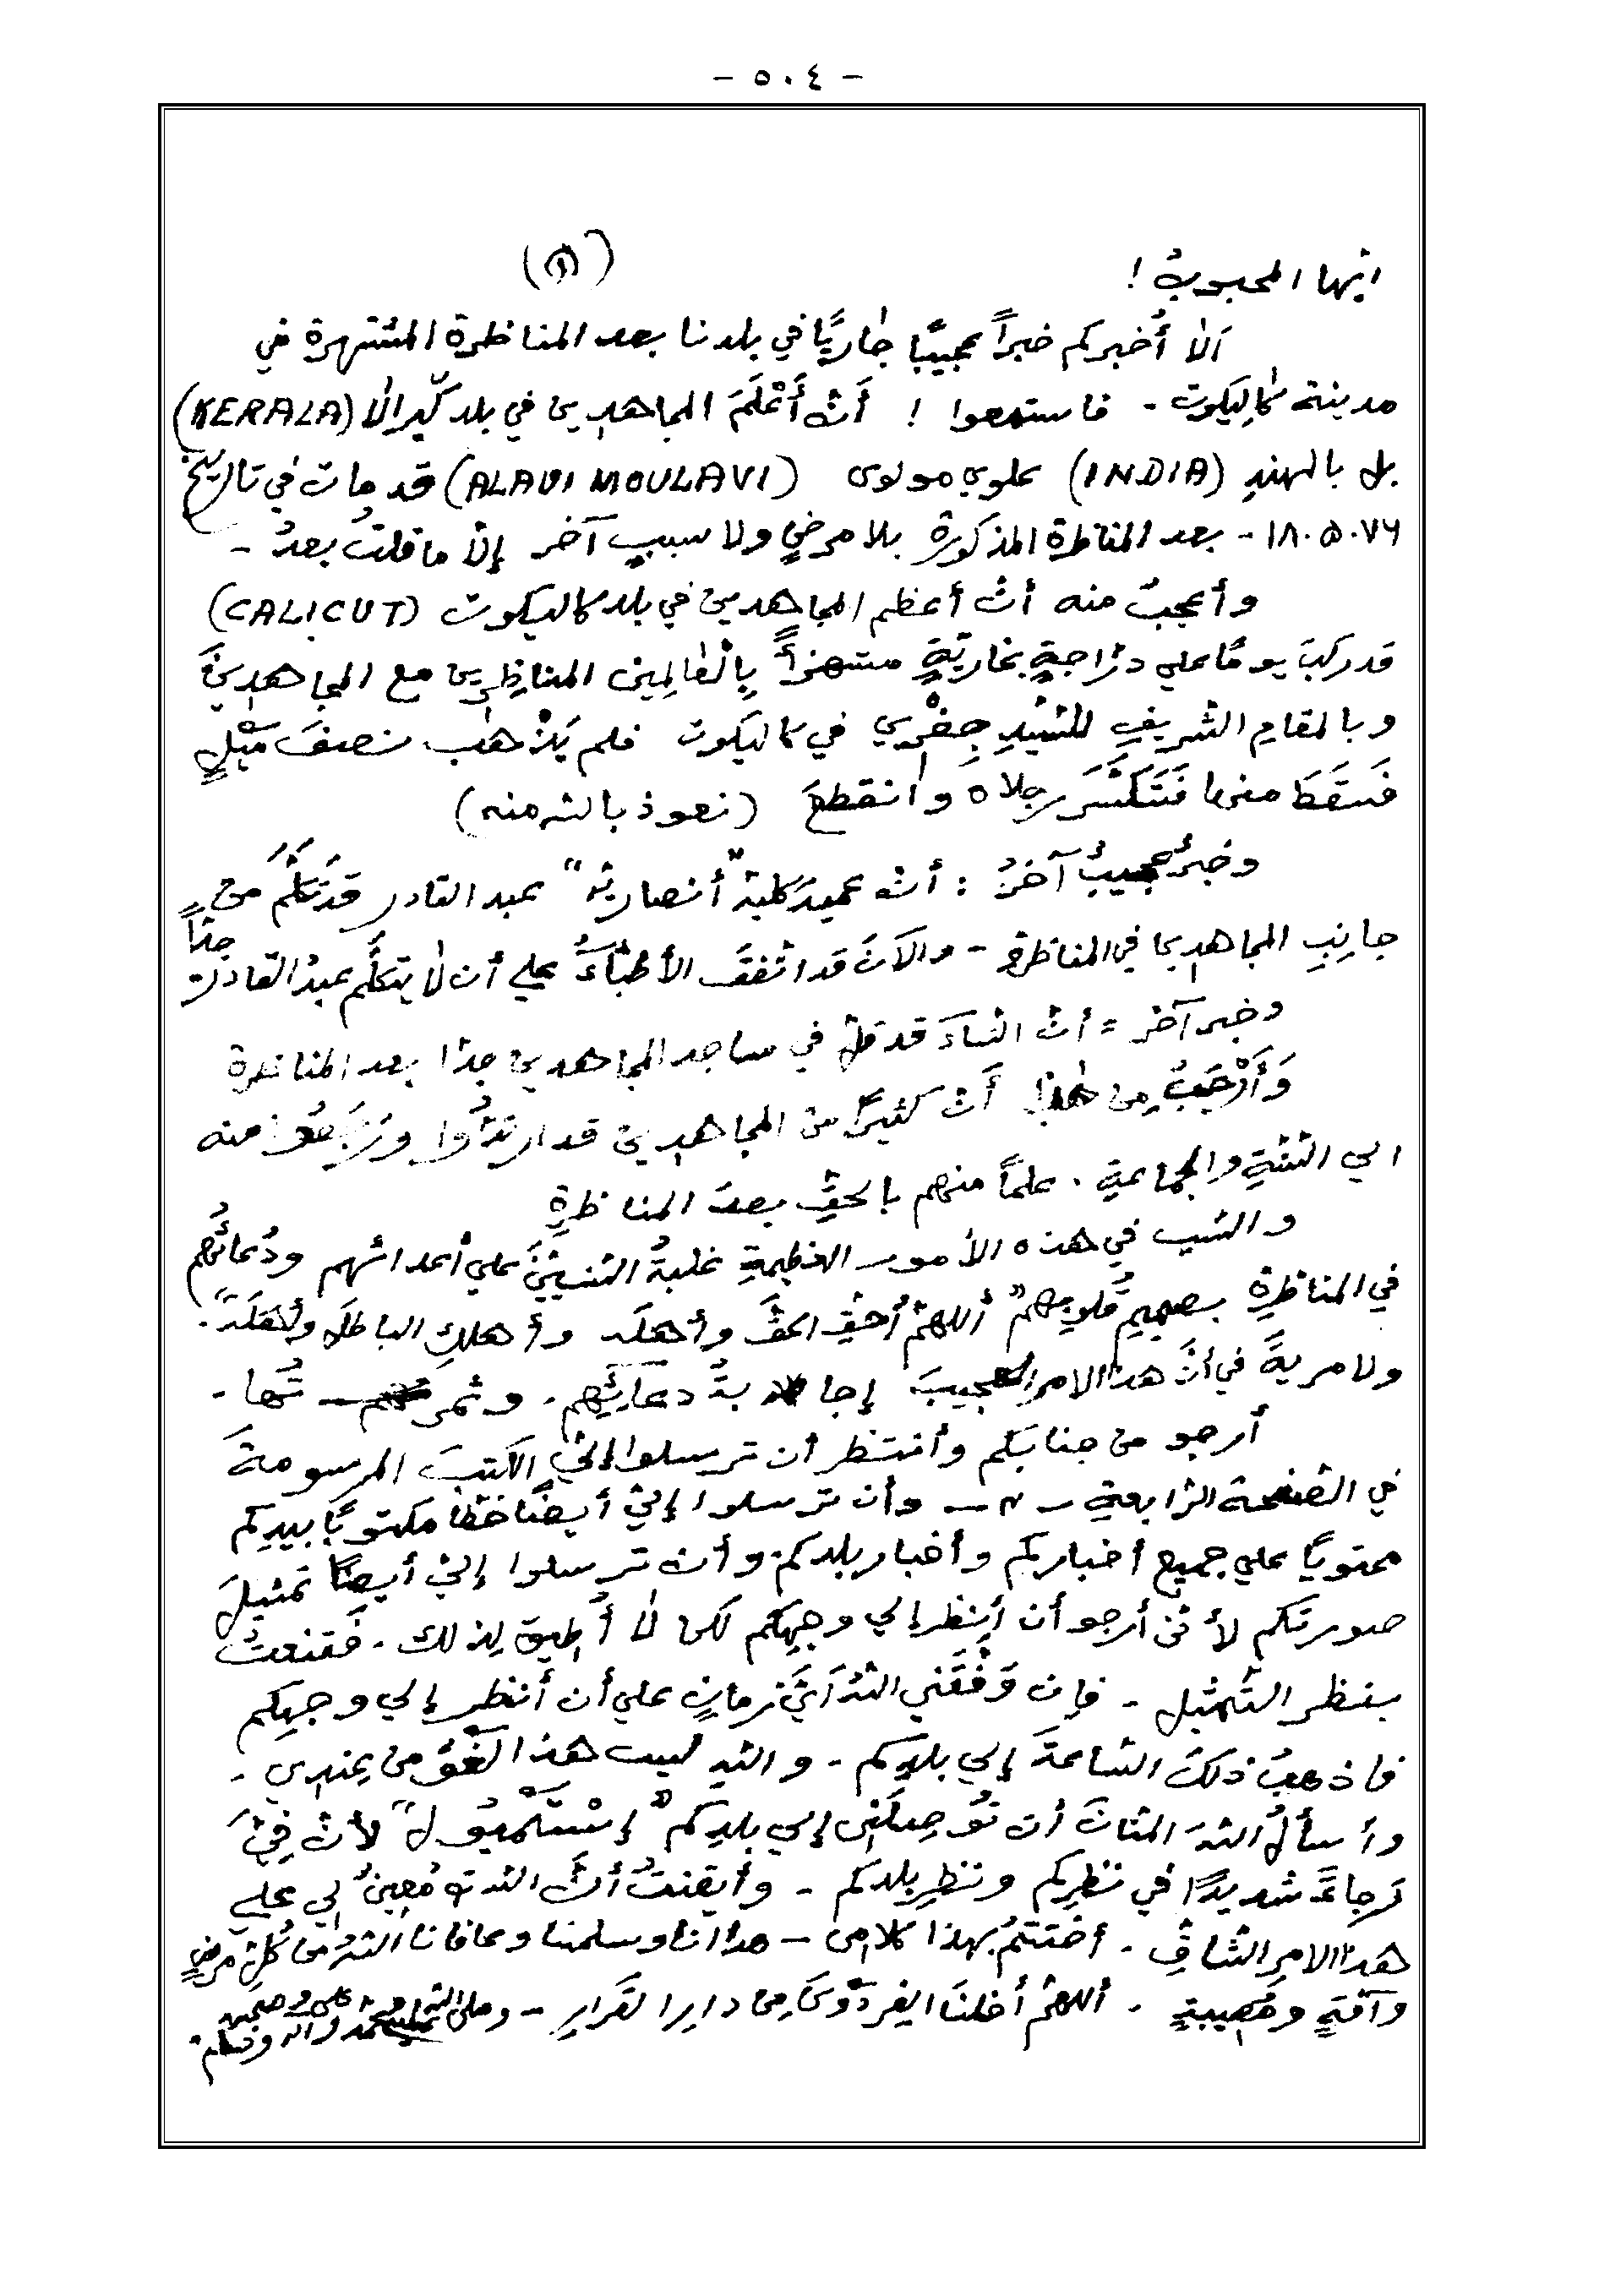 - ٥٠٤ -
ايّها المحبوبُ !
(١)
اَلاٰ أُخبركم خبراً عجيبًا جٰاريًا في بلدنا بعد المناظرة المشتهرة في
مدينة كٰالِيَكوت - فاستمعوا ! أنّ أَعْلَمَ المجاهدين في بلد كيّرالٰا (KERALA)
بل بالهندِ (INDIA) علوي مولوى (ALAVI MOULAVI) قد مات في تاريخ
١٨.٥.٧٦ - بعد المناظرة المذكورة بلا مرضٍ ولا سببٍ آخر إلّا ما قلتُ بعدُ -
وأعجبُ منه أنّ أعظم المجاهدين في بلد كاليكوت (CALICUT)
قد ركبَ يومًا على درّاجةٍ بخاريّةٍ مستهزأً بِالْعٰالِمِين المناظِرِين مع المجاهدِينَ
وبالمقامِ الشريفِ للسّيّدِ جِفْرِي في كاليكوت فلم يَذْهَب نصفَ مَيْلٍ
فَسَقَطَ منها فَتَكَسَّرَ رجلاه وانقطعَ (نعوذ بالله منه)
وخبرٌ عجيبٌ آخرُ : أنّ عميدَ كلية "أنصارية" عبد القادر قد تَكَلَّمَ من
جانِبِ المجاهدين في المناظرة - والآنَ قد اتّفقَ الأطبّاءُ على أن لٰا يتكلّم عبدُ القادر جدّاً
وخبر آخر = أنّ النساءَ قد قلّ في مساجد المجاهدين جدًا بعد المناظرة
وَأَعْجَبُ مِن هٰذا أنّ كثيرًا من المجاهدين قد ارتدُّوا ورَجَعُوا منه
الى السّنّةِ والجماعةِ . علماً منهم بالحقِّ بعدَ المناظرةِ
والسّبب في هذه الأمور العظيمةِ غلبةُ السّنيّينَ على أعدائهم ودُعائُهم
في المناظرةِ بصميمِ قلوبِهم "أللهمّ أَحِقَّ الحقَّ وأهلَه وأهلكِ الباطلَ وأهلَه" .
ولا مريةَ في أنّ هذا الامر العجيبَ إجابةُ دعائِهم . وثمرتُها .
أرجو من جنابكم وأنتظر أن ترسلوا إليَّ الكتبَ المرسومةَ
في الصّفحة الرّابعةِ - ٤ - وأن ترسلوا إليّ أيضًا خطًا مكتوبًا بيدِكم
محتويًا على جميع أخباركم وأخبار بلدكم وأن ترسلوا إليّ أيضًا تمثيلَ
صورتكم لأنّى أرجو أن أنظر إلى وجهِكم لكن لٰا أُطيق لِذلك . فَقنعتُ
بنظر التّمثيل - فإن وَفَّقَني اللهُ آيَّ زمانٍ على أن أنظر إلى وجهِكم
فاذهبُ ذلكَ السّاعةَ إلى بلدِكم - والله ليست هذا القوّة من عِندي -
وأسألُ اللهَ المنّانَ أن يُوصِلَنى إلى بلدِكم "إسْتَنْبُول" لأنّ فِيَّ
رَجاءً شديدًا في نظرِكم ونظرِ بلدكم - وأيقنتُ أنّ الله مُعِينٌ لي على
هذا الامرِ الشّاقِّ . أختتمُ بهذا كلامى - هدٰانا وسلمنا وعافانا اللهُ من كُلِّ مرضٍ
وآفةٍ ومُصيبةٍ . أللهمّ أدخلنَا الفِردَوسَ مِن دارِ القَرارِ - وصلى الله على محمّد وآله وصحبه وسلّم